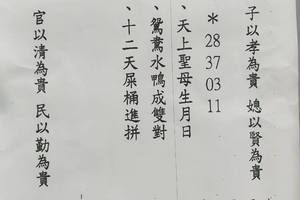 子以孝為貴 媳以賢為貴
＊28 37 03 11
、天上聖母生月日
、鴛鴦水鴨成雙對
、十二天屎桶進拼
官以清為貴 民以勤為貴